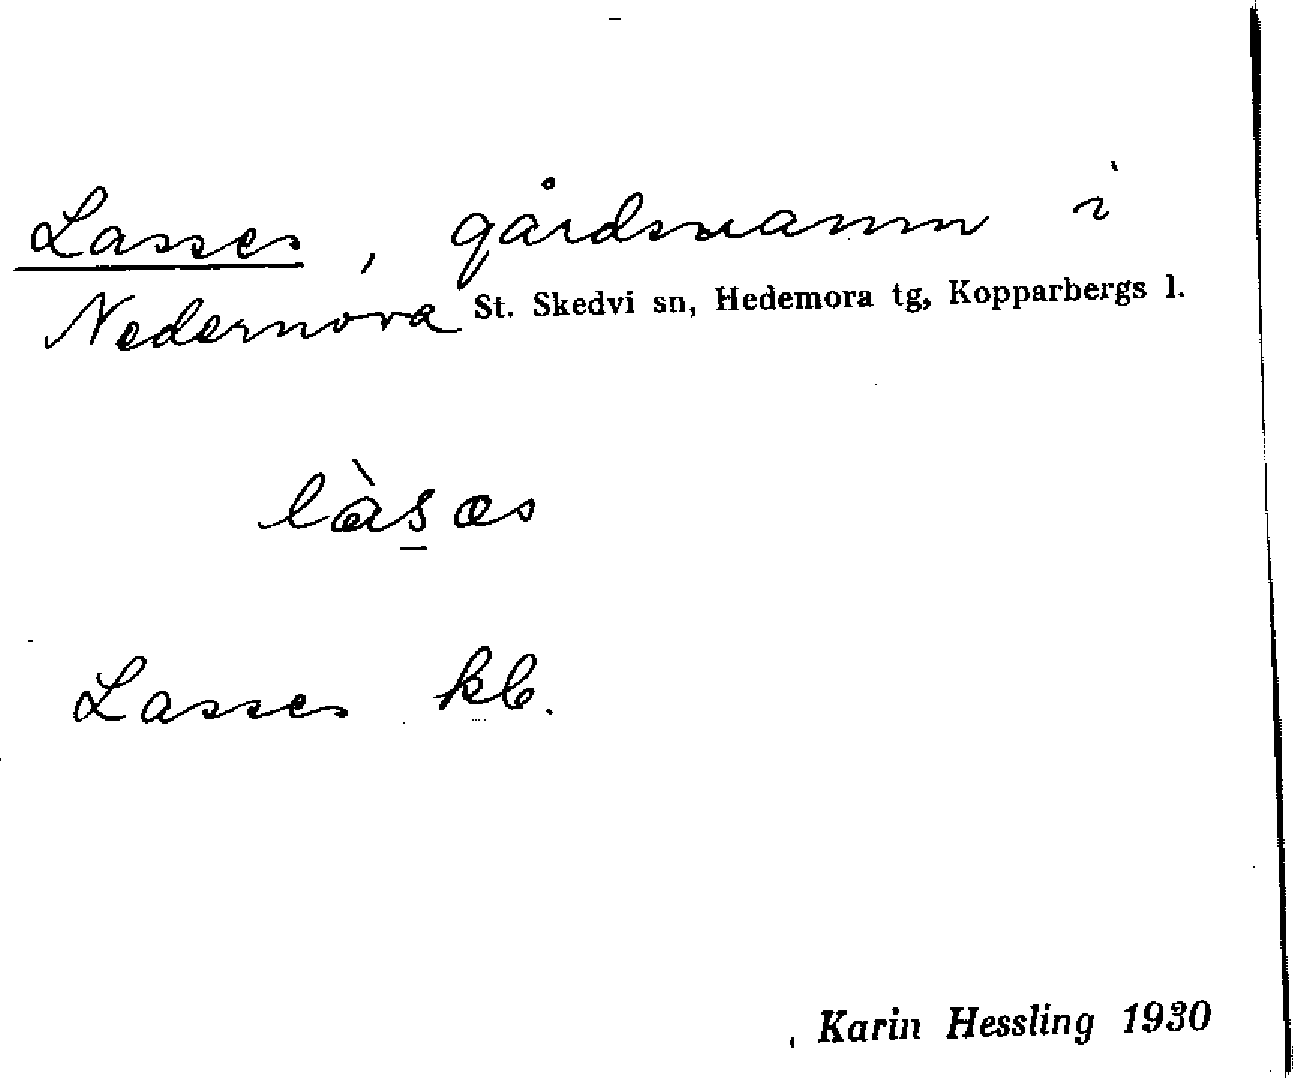 Lasses, gårdsnamn i
Nedernora St. Skedvi sn, Hedemora tg, Kopparbergs l.
làs̲æs
Lasses kb.
Karin Hessling 1930